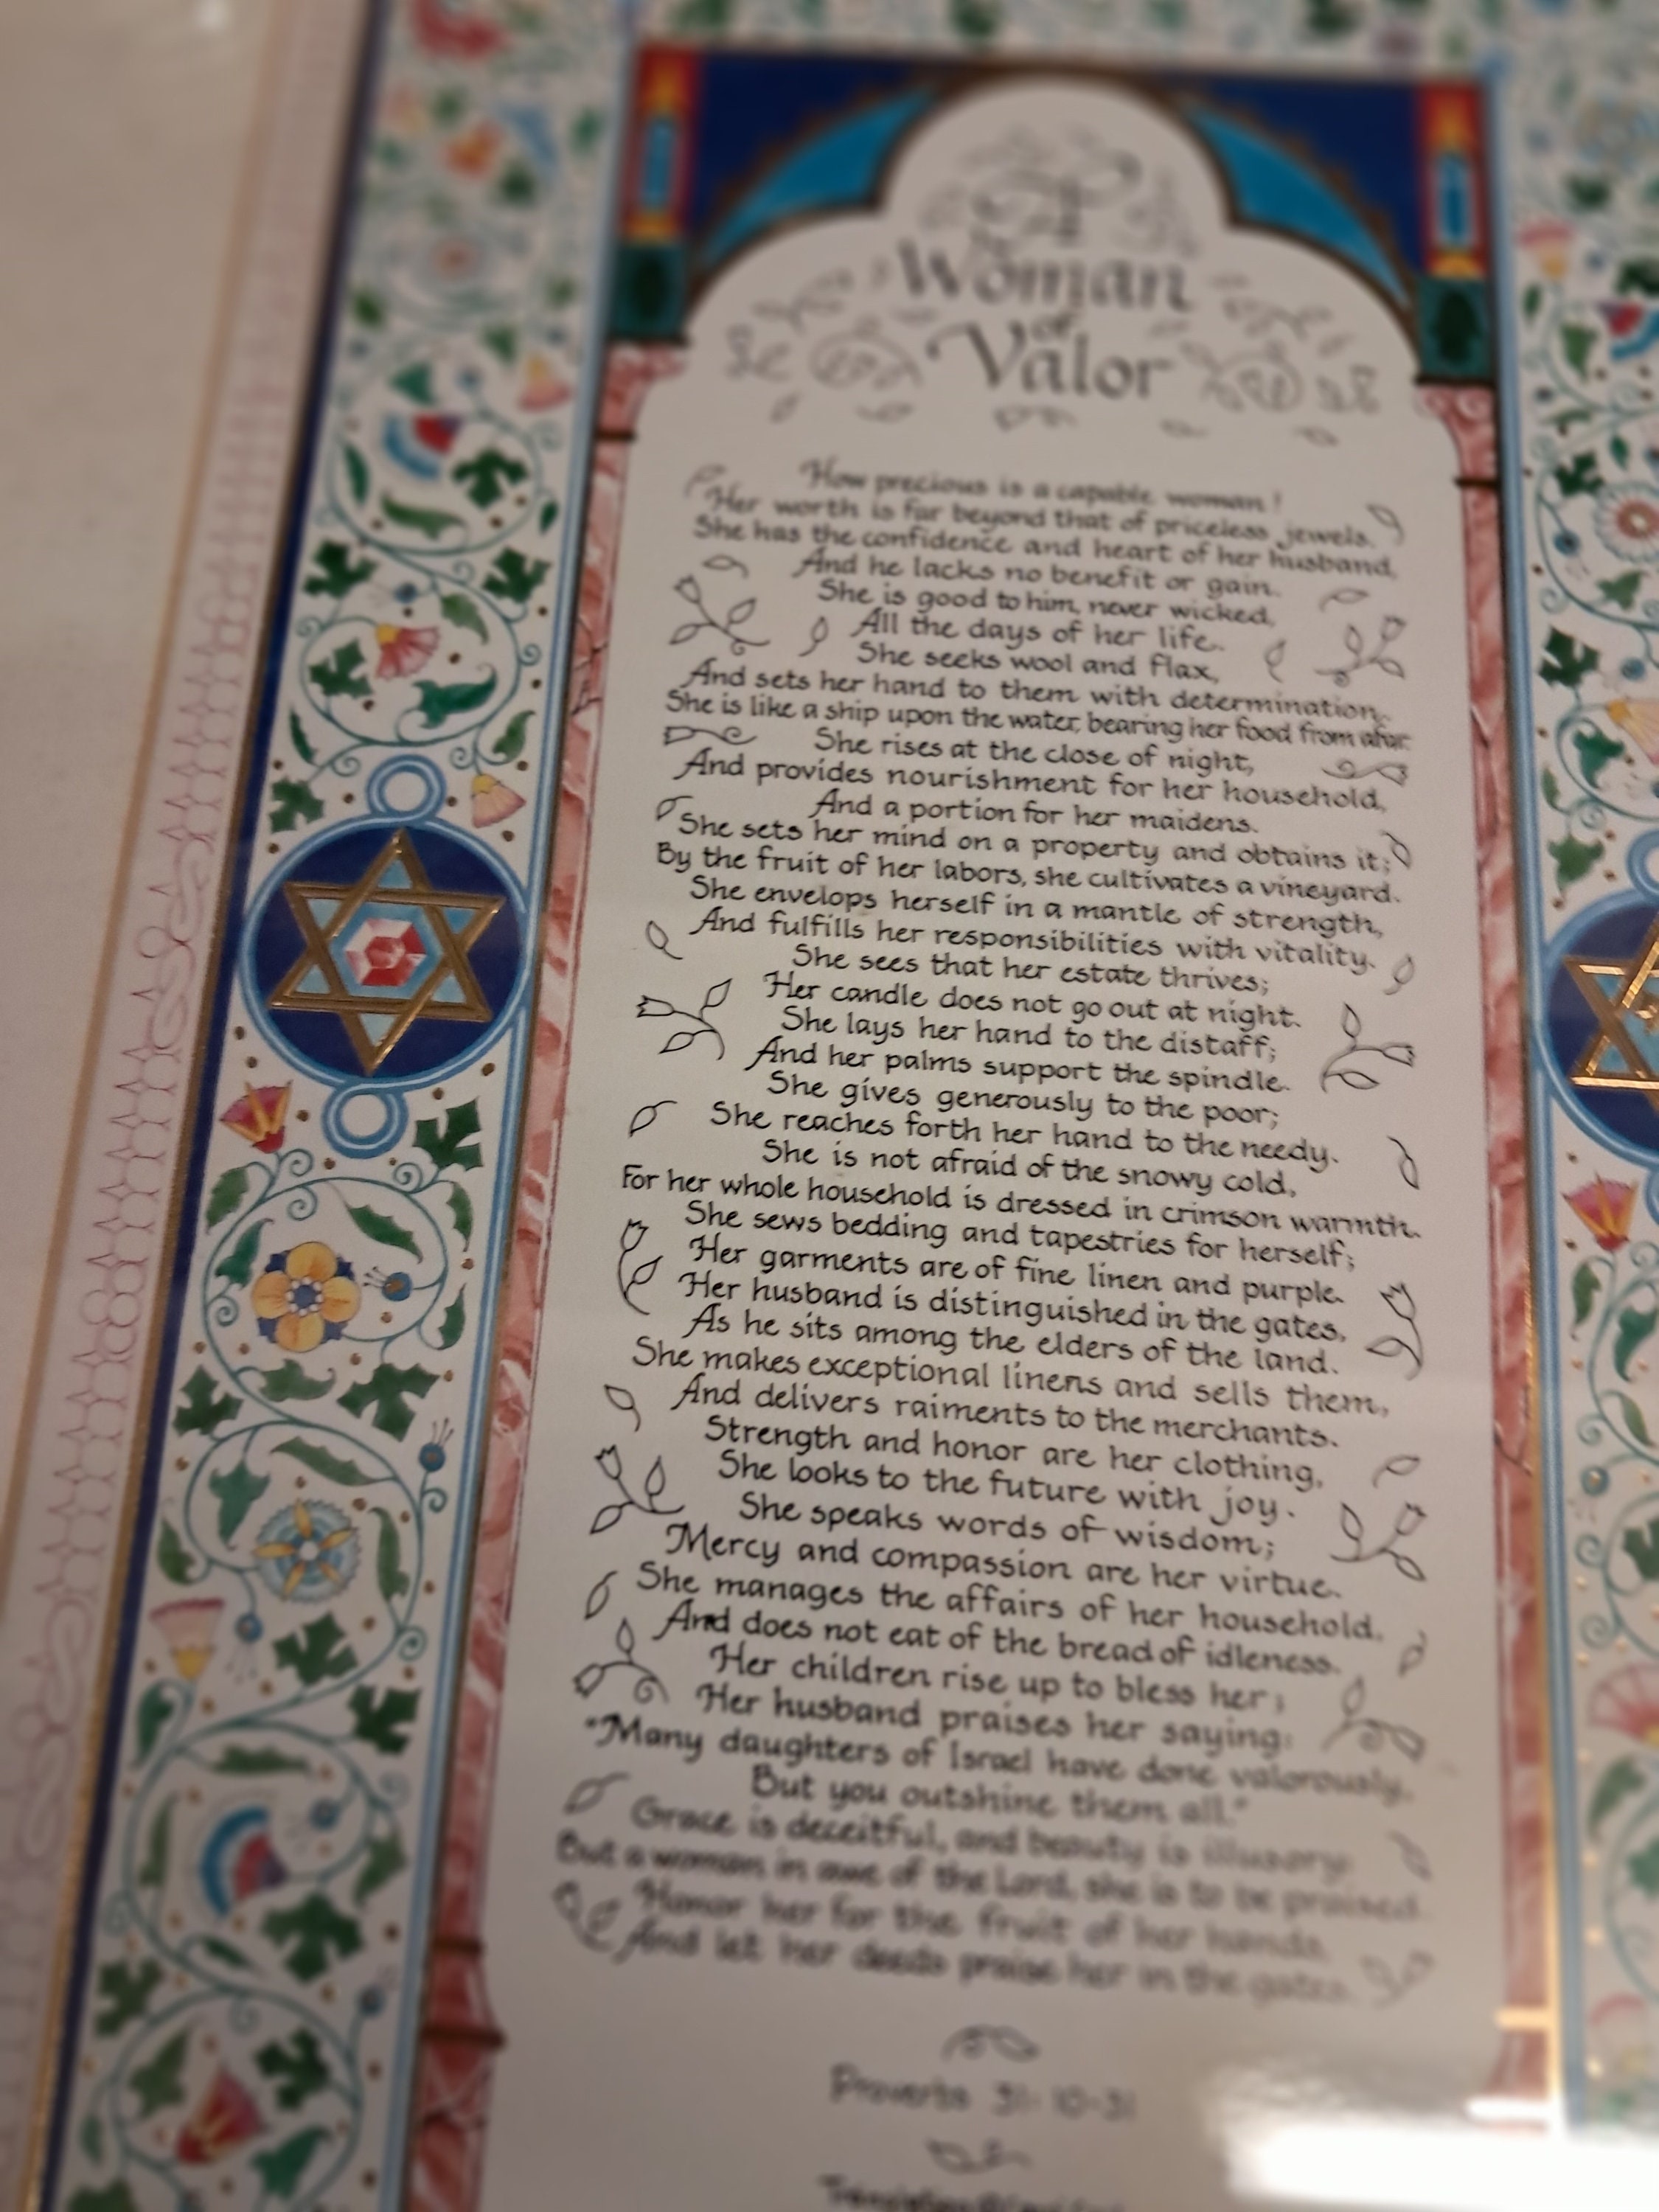 A
Woman
of
Valor
How precious is a capable woman!
Her worth is far beyond that of priceless jewels.
She has the confidence and heart of her husband,
And he lacks no benefit or gain.
She is good to him, never wicked,
All the days of her life.
She seeks wool and flax,
And sets her hand to them with determination.
She is like a ship upon the water, bearing her food from afar.
She rises at the close of night,
And provides nourishment for her household,
And a portion for her maidens.
She sets her mind on a property and obtains it;
By the fruit of her labors, she cultivates a vineyard.
She envelops herself in a mantle of strength,
And fulfills her responsibilities with vitality.
She sees that her estate thrives;
Her candle does not go out at night.
She lays her hand to the distaff;
And her palms support the spindle.
She gives generously to the poor;
She reaches forth her hand to the needy.
She is not afraid of the snowy cold,
For her whole household is dressed in crimson warmth.
She sews bedding and tapestries for herself;
Her garments are of fine linen and purple.
Her husband is distinguished in the gates,
As he sits among the elders of the land.
She makes exceptional linens and sells them,
And delivers raiments to the merchants.
Strength and honor are her clothing,
She looks to the future with joy.
She speaks words of wisdom;
Mercy and compassion are her virtue.
She manages the affairs of her household.
And does not eat of the bread of idleness.
Her children rise up to bless her;
Her husband praises her saying:
"Many daughters of Israel have done valorously,
But you outshine them all."
Grace is deceitful, and beauty is illusory:
But a woman in awe of the Lord, she is to be praised.
Honor her for the fruit of her hands,
And let her deeds praise her in the gates.
Proverbs 31:10-31